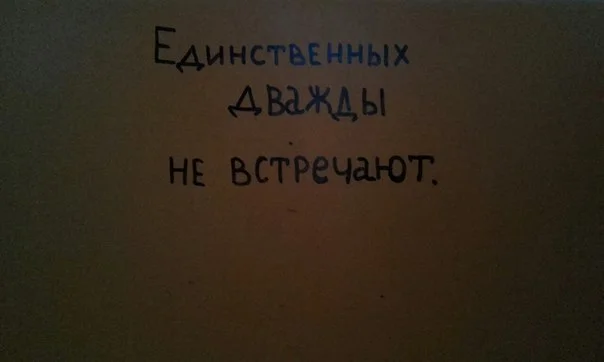 Единственных
дважды
не встречают.